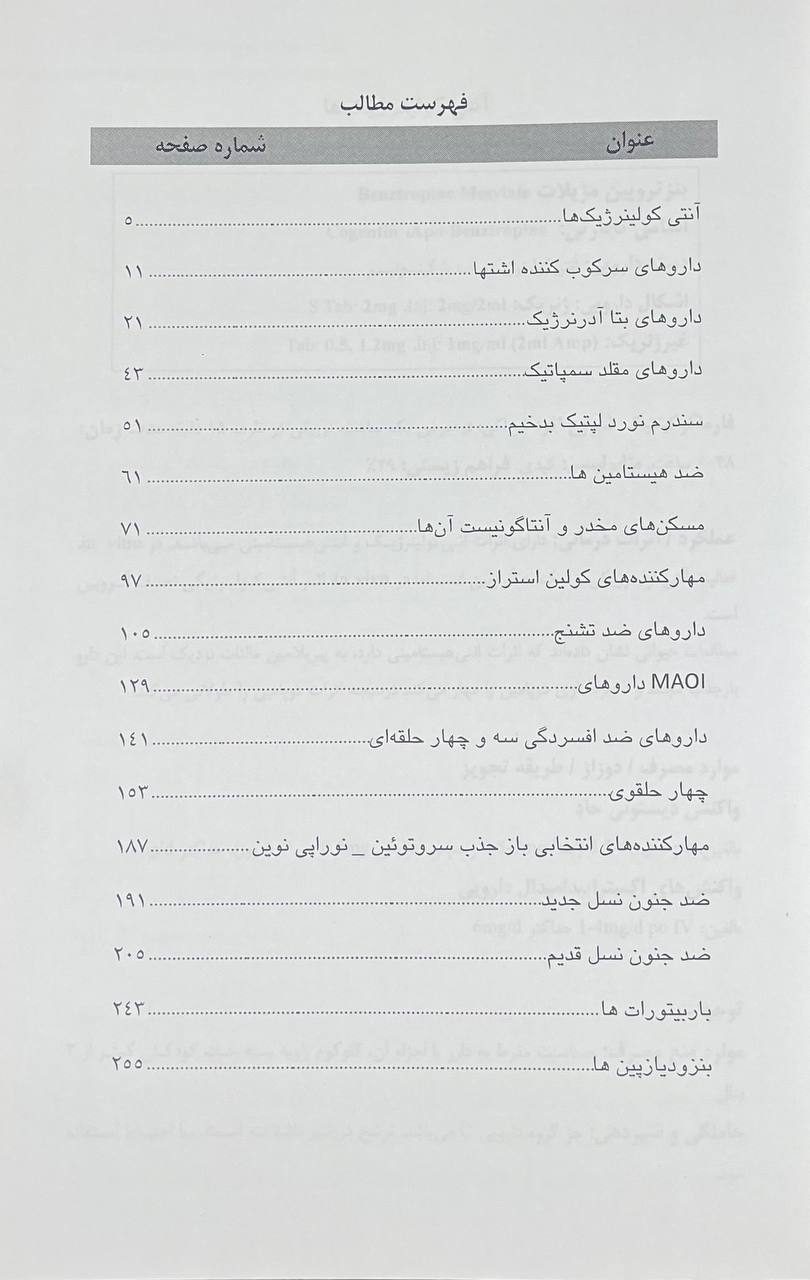 فهرست مطالب
عنوان شماره صفحه
آنتی کولینرژیک‌ها................................۵
داروهای سرکوب کننده اشتها................................۱۱
داروهای بتا آدرنرژیک................................۲۱
داروهای مقلد سمپاتیک................................٤۳
سندرم نورد لپتیک بدخیم................................۵۱
ضد هیستامین ها................................٦۱
مسکن‌های مخدر و آنتاگونیست آن‌ها................................۷۱
مهارکننده‌های کولین استراز................................۹۷
داروهای ضد تشنج................................۱۰۵
MAOI داروهای................................۱۲۹
داروهای ضد افسردگی سه و چهار حلقه‌ای................................۱٤۱
چهار حلقوی................................۱۵۳
مهارکننده‌های انتخابی باز جذب سروتوئین _ نوراپی نوین................................۱۸۷
ضد جنون نسل جدید................................۱۹۱
ضد جنون نسل قدیم................................۲۰۵
باربیتورات ها................................۲٤۳
بنزودیازپین ها................................۲۵۵